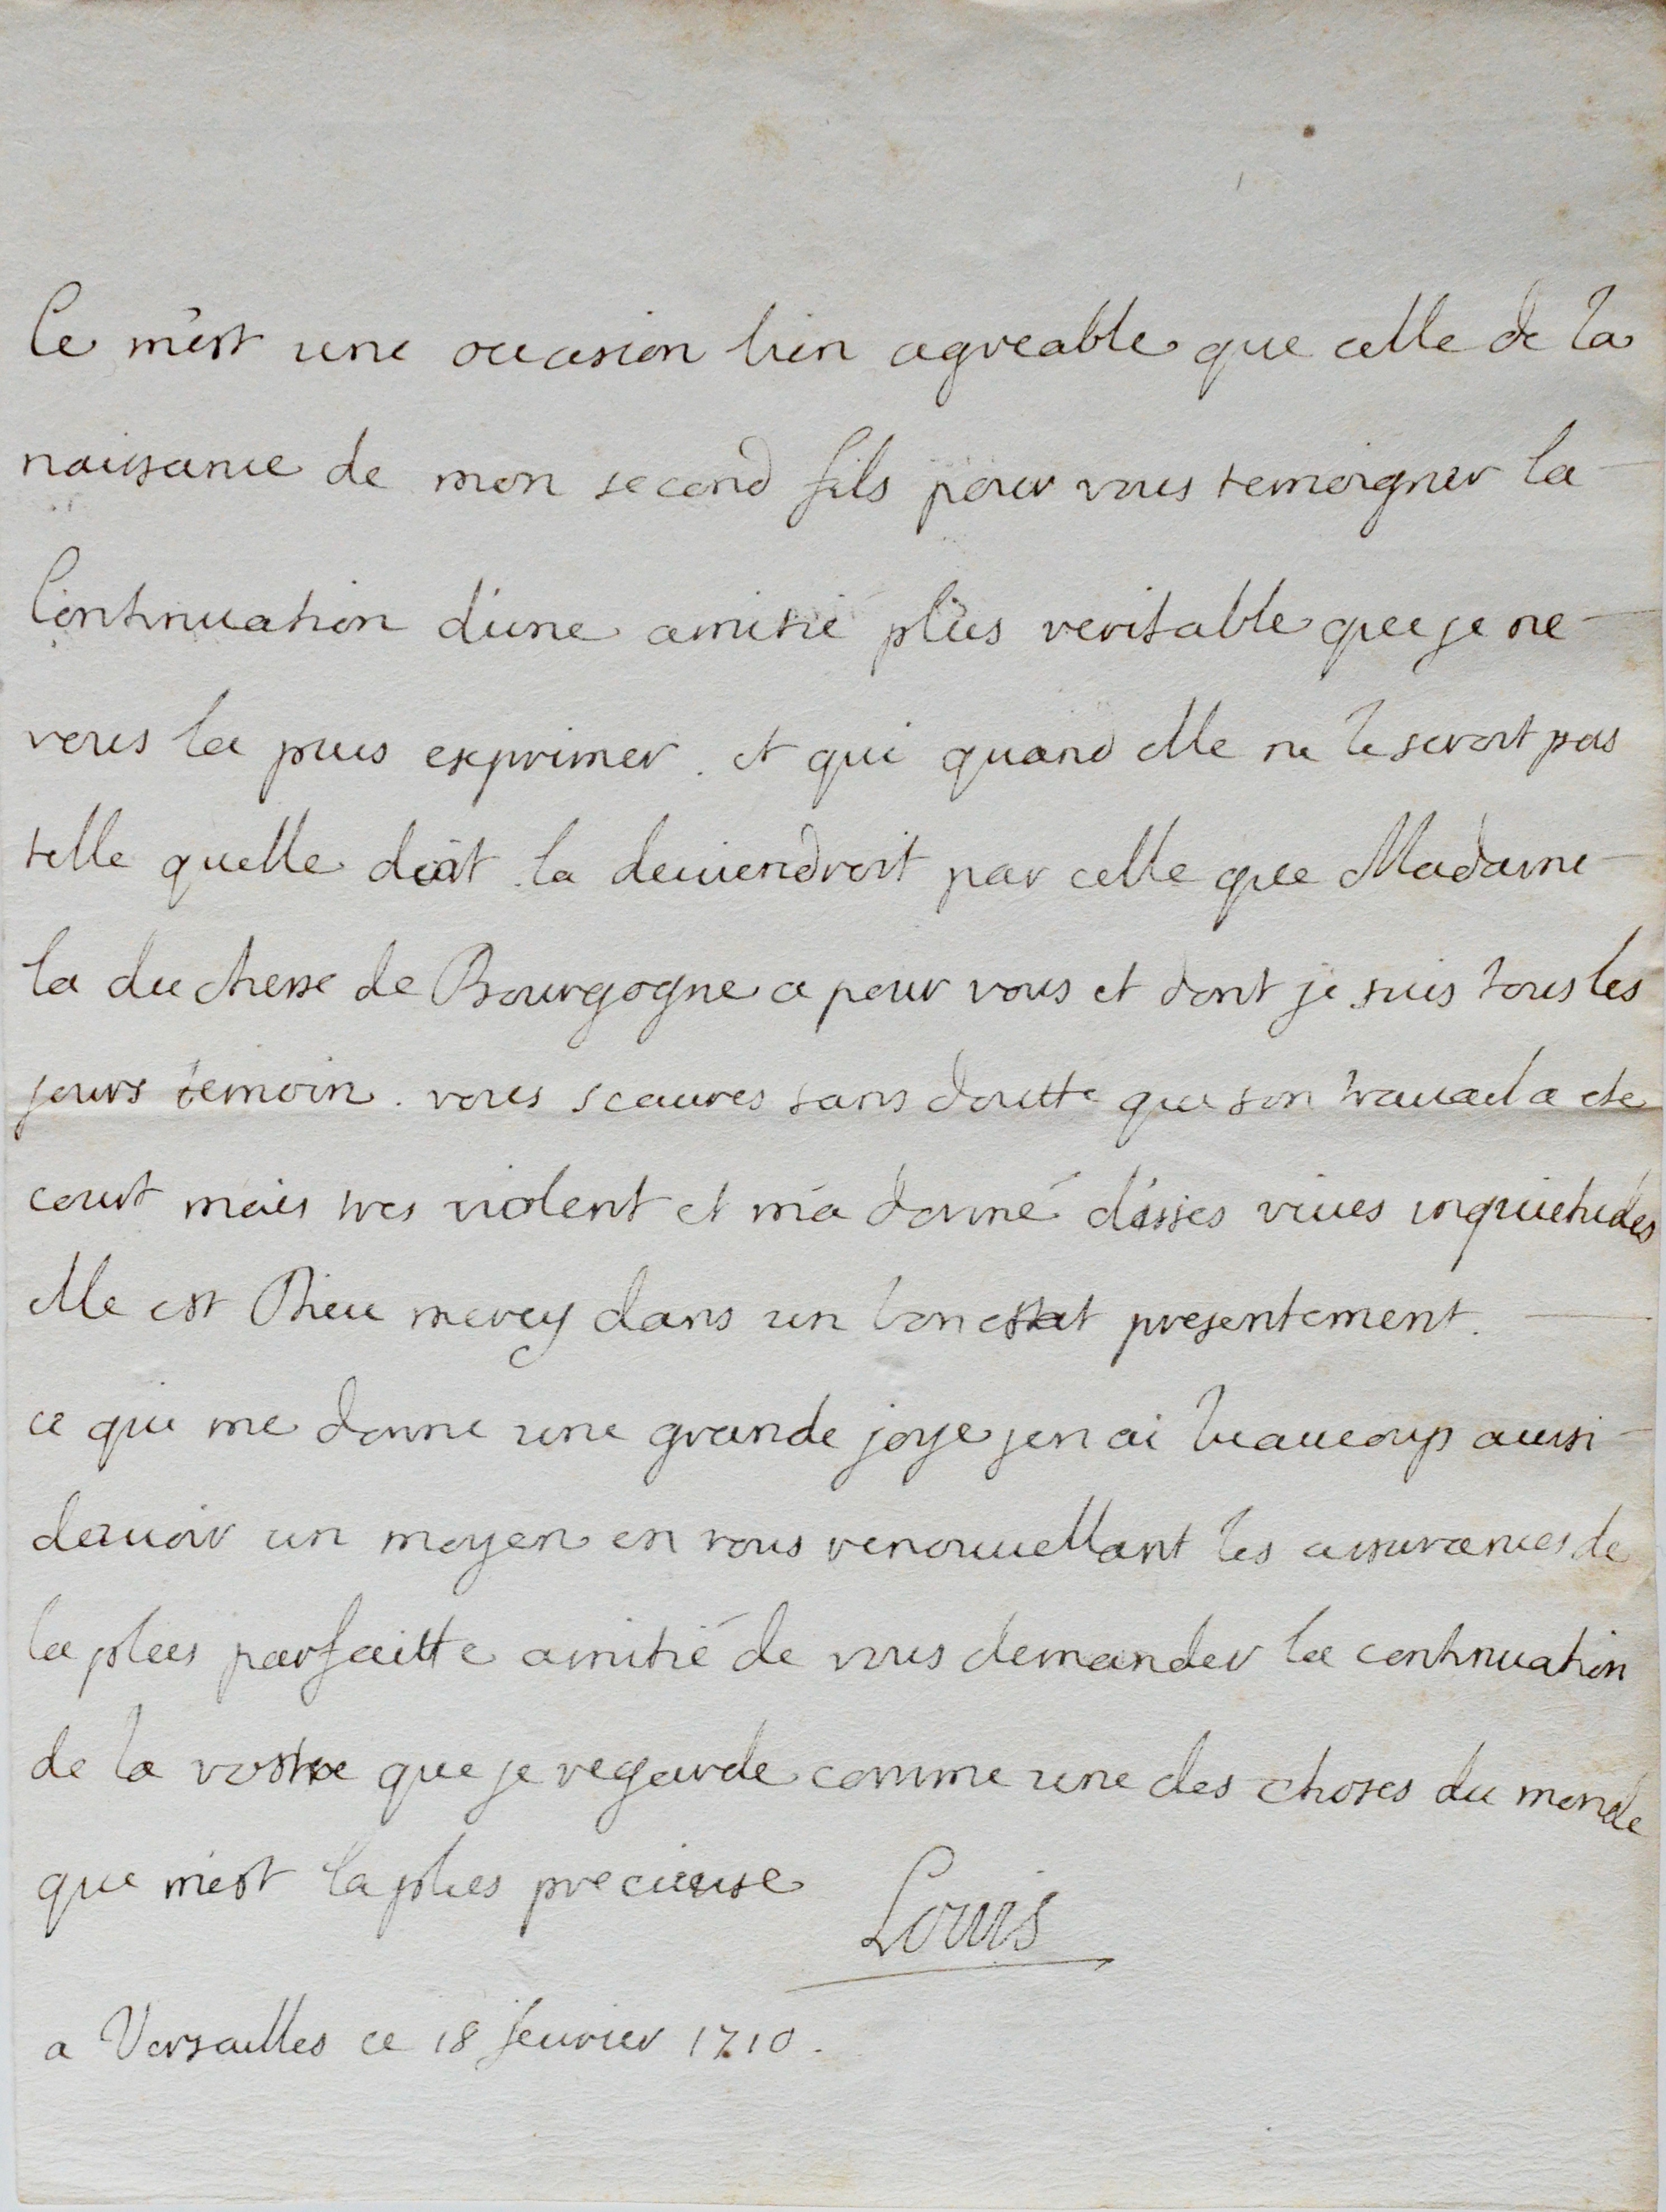 Ce m'est une occasion bien agreable que celle de la
naissance de mon second fils pour vous temoigner la
Continuation d'une amitié plus veritable que je ne
vous la puis exprimer. et qui quand elle ne le seroit pas
telle quelle doit la deuiendroit par celle que Madame
la duchesse de Bourgogne a pour vous et dont je suis tous les
jours temoin. vous scaures sans doutte que son trauail a ete
court mais tres violent et m'a donné d'asses viues inquietudes
elle est Dieu mercy dans un bon estat presentement.
ce qui me donne une grande joye jen ai beaucoup aussi
dauoir un moyen en vous renouuellant les assurances de
la plus parfaitte amitié de vous demander la continuation
de la vostre que je regarde comme une des choses du monde
que m'est la plus precieuse
Louis
a Versailles ce 18 feurier 1710.